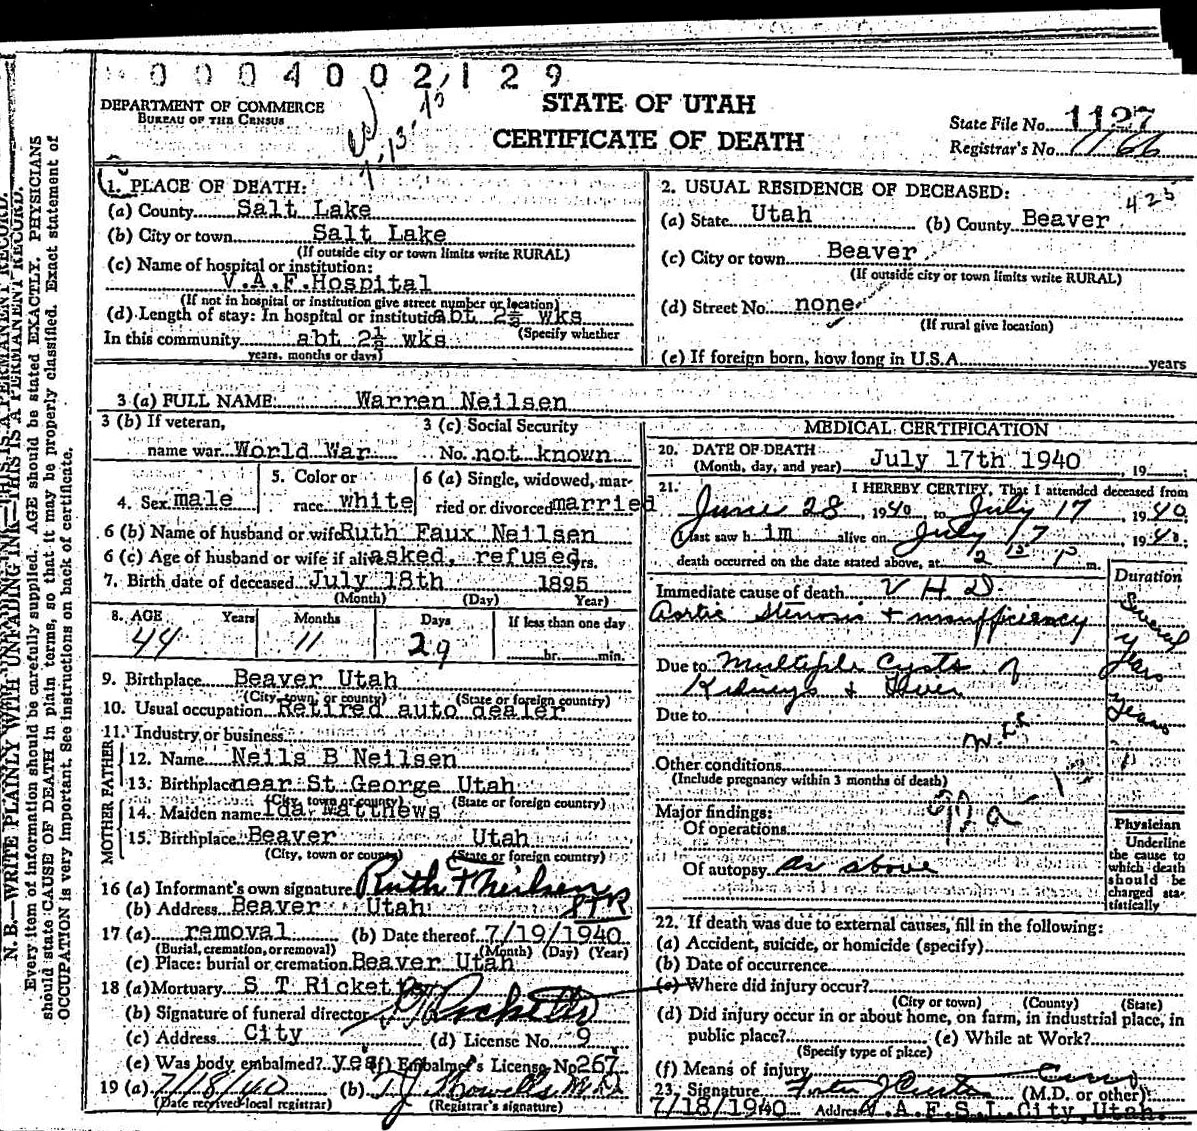 0004002129
DEPARTMENT OF COMMERCE
BUREAU OF THE CENSUS
STATE OF UTAH
CERTIFICATE OF DEATH
State File No. 1127
Registrar's No. 1166
1. PLACE OF DEATH:
(a) County Salt Lake
(b) City or town Salt Lake
(If outside city or town limits write RURAL)
(c) Name of hospital or institution:
V.A.F. Hospital
(If not in hospital or institution give street number or location)
(d) Length of stay: In hospital or institution abt 2½ wks
(Specify whether
In this community abt 2½ wks
years, months or days)
2. USUAL RESIDENCE OF DECEASED: 425
(a) State Utah (b) County Beaver
(c) City or town Beaver
(If outside city or town limits write RURAL)
(d) Street No. none
(If rural give location)
(e) If foreign born, how long in U.S.A. years
3 (a) FULL NAME: Warren Neilsen
3 (b) If veteran, 3 (c) Social Security
name war World War No. not known
4. Sex male 5. Color or race white 6 (a) Single, widowed, married or divorced married
6 (b) Name of husband or wife Ruth Faux Neilsen
6 (c) Age of husband or wife if alive asked, refused yrs.
7. Birth date of deceased July 18th 1895
(Month) (Day) Year)
8. AGE Years Months Days If less than one day
44 11 29 hr. min.
9. Birthplace Beaver Utah
(City, town, or county) (State or foreign country)
10. Usual occupation Retired auto dealer
11. Industry or business
FATHER
12. Name Neils B Neilsen
13. Birthplace near St George Utah
(City, town or county) (State or foreign country)
MOTHER
14. Maiden name Ida Matthews
15. Birthplace Beaver Utah
(City, town or county) (State or foreign country)
16 (a) Informant's own signature Ruth F Neilsen
(b) Address Beaver Utah STR
17 (a) removal (b) Date thereof 7/19/1940
(Burial, cremation, or removal) (Month) (Day) (Year)
(c) Place: burial or cremation Beaver Utah
18 (a) Mortuary S T Ricketts
(b) Signature of funeral director Ricketts
(c) Address City (d) License No. 9
(e) Was body embalmed? yes (f) Embalmer's License No 267
19 (a) 7/18/40 (b) T J Howells M.D.
(Date received local registrar) (Registrar's signature)
MEDICAL CERTIFICATION
20. DATE OF DEATH
(Month, day, and year) July 17th 1940, 19
21. I HEREBY CERTIFY, That I attended deceased from
June 28, 1940, to July 17, 1940
I last saw him alive on July 17, 1940
death occurred on the date stated above, at 2 15 P m.
Duration
Immediate cause of death V H D
Aortic Stenosis + insufficiency Several years
Due to Multiple Cysts of
Kidneys + Liver years
Due to
Other conditions
(Include pregnancy within 3 months of death)
Major findings:
Of operations
Of autopsy as above
Physician
Underline
the cause to
which death
should be
charged statistically
22. If death was due to external causes, fill in the following:
(a) Accident, suicide, or homicide (specify)
(b) Date of occurrence
(c) Where did injury occur?
(City or town) (County) (State)
(d) Did injury occur in or about home, on farm, in industrial place, in
public place? (e) While at Work?
(Specify type of place)
(f) Means of injury
23. Signature (M.D. or other)
7/18/1940 Address V.A.F.S.L.City,Utah.
N. B.—WRITE PLAINLY WITH UNFADING INK—THIS IS A PERMANENT RECORD.
Every item of information should be carefully supplied. AGE should be stated EXACTLY. PHYSICIANS
should state CAUSE OF DEATH in plain terms, so that it may be properly classified. Exact statement of
OCCUPATION is very important. See instructions on back of certificate.